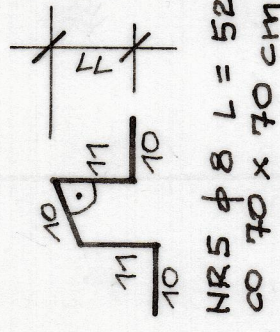 11
10
11
10
11
10
NR5 ϕ8 L = 52
co 70 x 70 cm